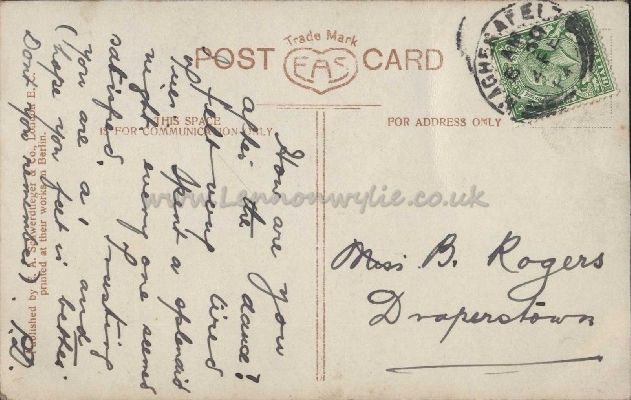 Trade Mark
POST CARD
EAS
THIS SPACE
IS FOR COMMUNICATION ONLY
FOR ADDRESS ONLY
MAGHERAFELT
How are you
after the dance?
feet very tired
Spent a splendid
night every one seemed
satisfied. Trusting
you are a' and
(hope your feet is better.
Don't you remember).
Miss B. Rogers
Draperstown
Published by E. A. Schwerdtfeger & Co., London E.C.
printed at their works in Berlin.
www.Lennonwylie.co.uk